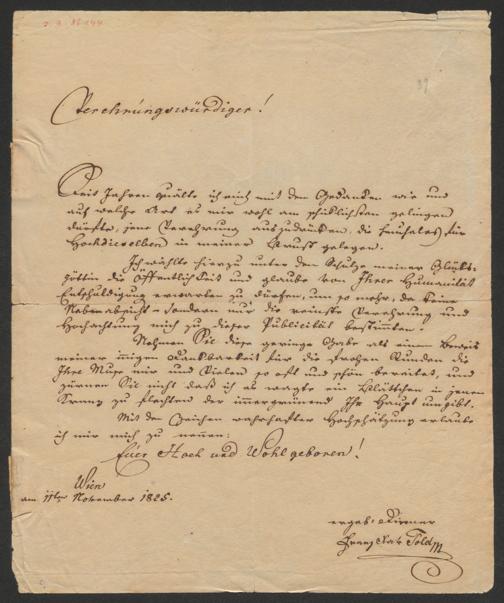 39
Verehrungswürdiger!
Seit Jahren quälte ich mich mit den Gedanken wie und
auf welche Art es mir wohl am schicklichsten gelingen
dürfte, jene Verehrung auszudrücken, die für
Hochdieselben in meiner Brust gelegen.
Ich wählte hierzu unter dem Schutze meiner Glücks-
göttin die Öffentlichkeit und glaube von Ihrer Humanität
Entschuldigung erwarten zu dürfen, um so mehr, da keine
Nebenabsicht – sondern nur die reinste Verehrung und
Hochachtung mich zu dieser Publicität bestimmten.
Nehmen Sie diese geringe Gabe als einen Beweis
meiner innigen Dankbarkeit für die frohen Stunden die
Ihre Muse mir und Vielen so oft und schön bereitet, und
zürnen Sie nicht daß ich es wagte ein Blättchen in jenen
Kranz zu flechten der immergrünend Ihr Haupt umgibt.
Mit den Zeichen wahrhafter Hochschätzung erlaube
ich mir mich zu nennen:
Euer Hoch und Wohlgeboren!
Wien
am 11ten November 1825.
ergeb: Diener
Franz Xav Told